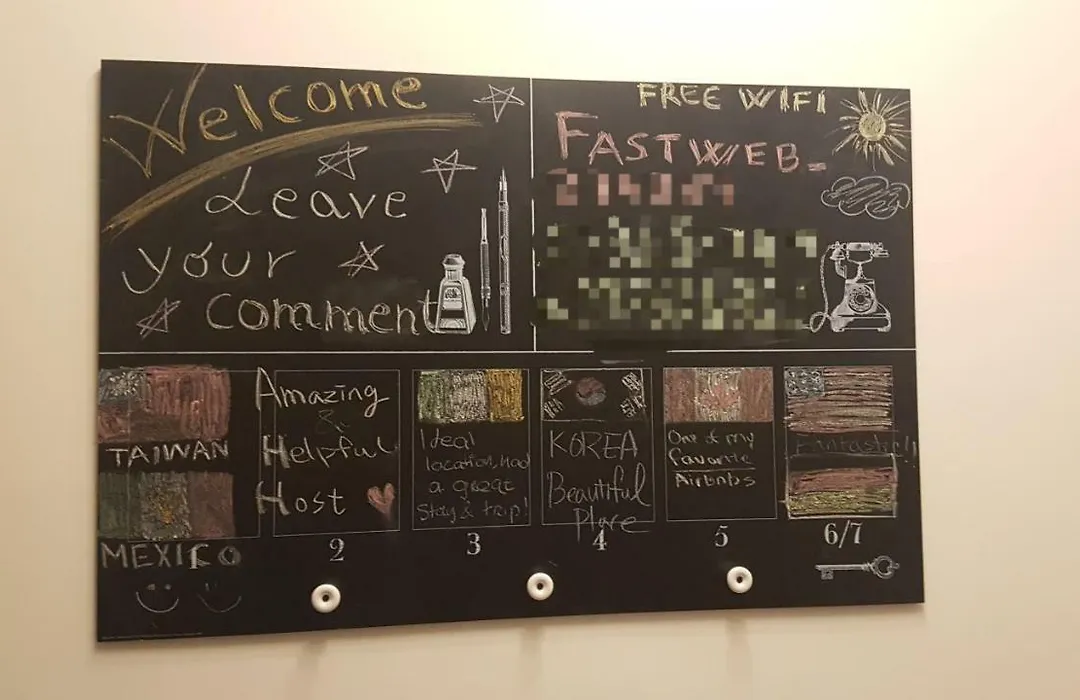 Welcome
Leave
your
comment
FREE WIFI
FASTWEB-
TAIWAN
MEXICO
Amazing
&
Helpful
Host
2
Ideal
location, Had
a great
stay & trip!
3
KOREA
Beautiful
Place
4
One of my
favorite
Airbnbs
5
Fantastic!!
6/7